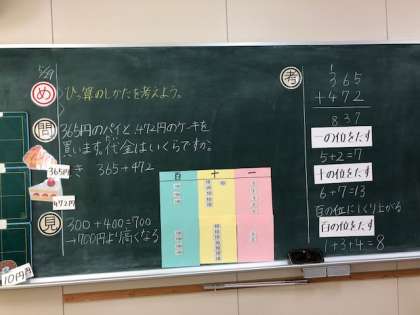 5/29
め
ひっ算のしかたを考えよう。
問
365円のパイと、472円のケーキを
買います。代金はいくらですか。
き 365+472
365円
472円
見
300+400=700
→700円より高くなる
10円
百 十 一
考
1
365
+472
837
一の位をたす
5+2=7
十の位をたす
6+7=13
百の位に1くり上がる
百の位をたす
1+3+4=8